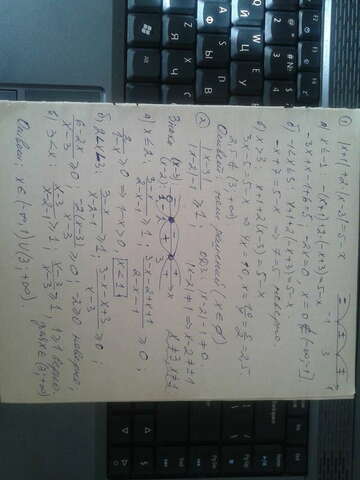 ① |x+1|+2·|x-3|=5-x
а) x≤-1: -(x+1)+2·(-x+3)=5-x
-3x+x-1+6=5; -2x=0; x=0∉(-∞;-1]
б) -1<x≤3: x+1+2(-x+3)=5-x
-x+7=5-x ⇒ 7=5 неверно.
в) x>3: x+1+2(x-3)=5-x
3x-5=5-x ⇒ 4x=10, x=10/4=5/2=2,5
2,5∉(3;+∞)
Ответ: нет решений (x∈Ø)
② |x-3|/(|x-2|-1) ≥1;
ОДЗ: |x-2|-1≠0
|x-2|≠1 ⇒ x-2≠±1
x≠3, x≠1
Знаки (x-3):
(x-2):
а) x≤2: (3-x)/(2-x-1) ≥1; (3-x-2+x+1)/(2-x-1) ≥0;
2/(1-x) ≥0 ⇒ 1-x>0 x<1
б) 2<x<3: (3-x)/(x-2-1) ≥1; (3-x-x+3)/(x-3) ≥0;
(6-2x)/(x-3) ≥0; -2(x-3)/(x-3) ≥0; -2≥0 неверно;
в) 3<x: (x-3)/(x-2-1) ≥1; (x-3)/(x-3) ≥1; 1≥1 верно
для x∈(3;+∞)
Ответ: x∈(-∞;1)∪(3;+∞).